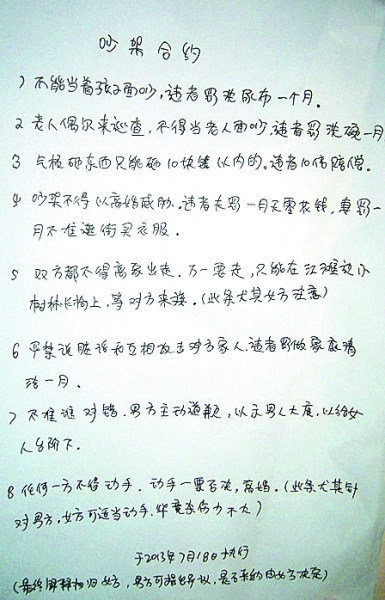 吵架合约
1 不能当着孩子面吵,违者罚洗尿布一个月.
2 老人偶尔来巡查,不得当老人面吵,违者罚洗碗一月
3 气极砸东西只能砸10块钱以内的.违者10倍赔偿.
4 吵架不得以离婚威胁.违者夫罚一月无零花钱,妻罚一
月不准逛街买衣服.
5 双方都不得离家出走.万一要走,只能在江堤边小
树林长椅上,等对方来找.(此条尤其女方注意)
6 严禁说脏话和互相攻击对方家人.违者罚做家庭清
洁一月.
7 不准谁对错.男方主动道歉,以示男人大度,以给女
人台阶下.
8 任何一方不得动手.动手一票否决,离婚.(此条尤其针
对男方,女方可适当动手.毕竟杀伤力不大)
于2013年7月18日执行
(最终解释权归女方,男方可提出异议,是否采纳由女方决定)